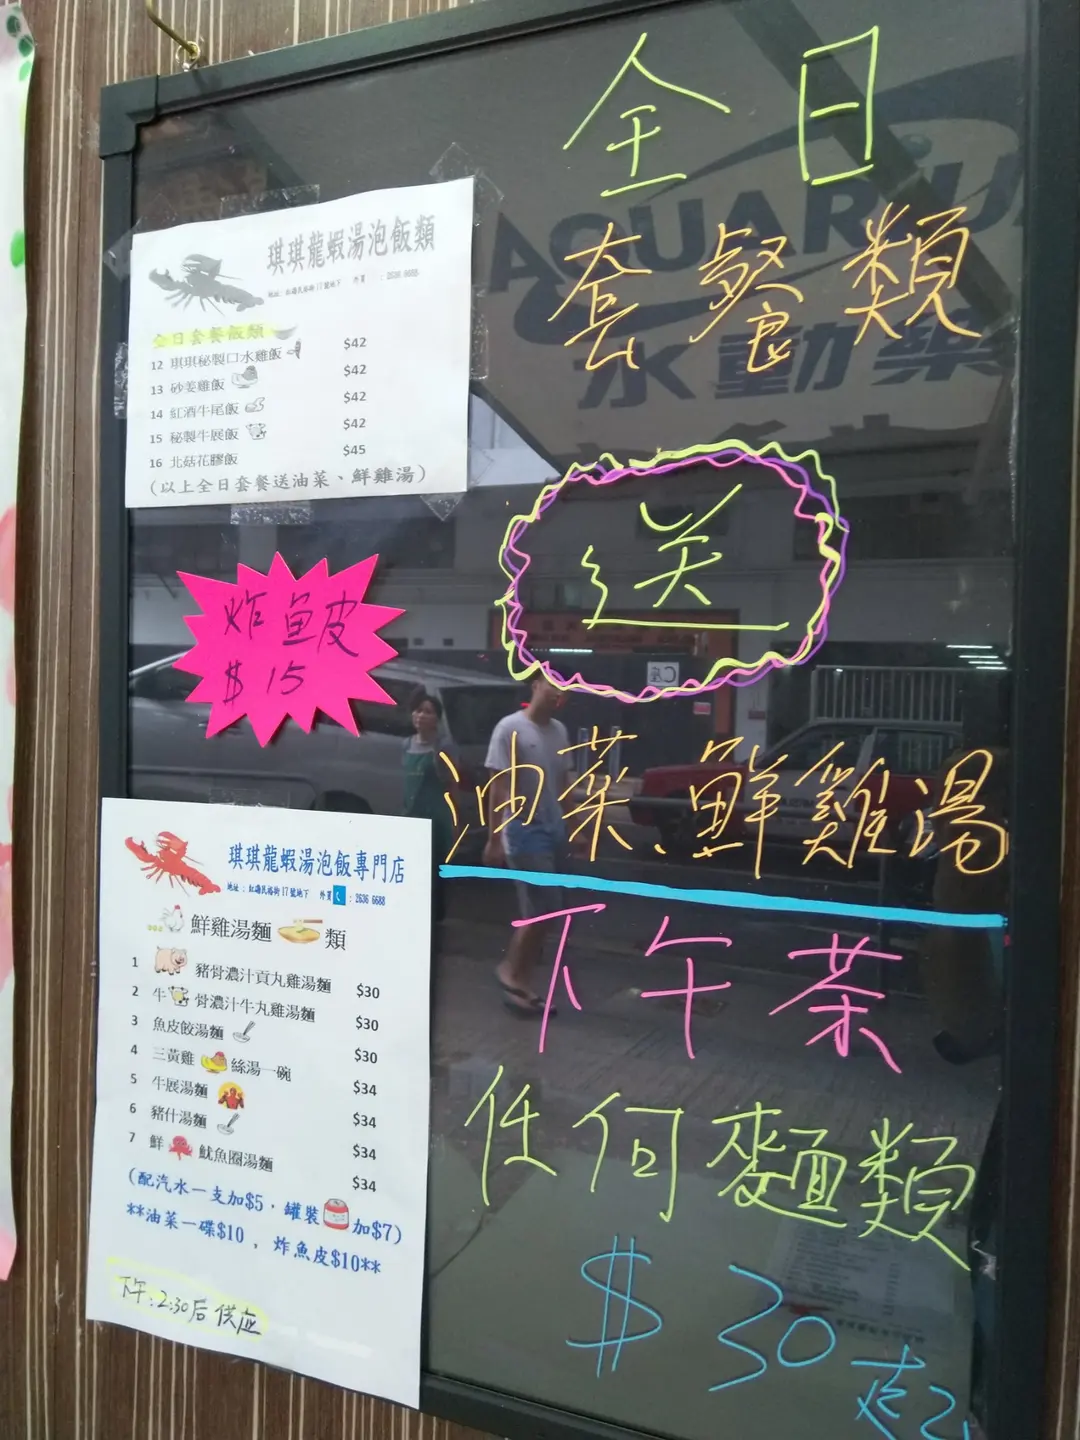 全日
套餐類
送
油菜、鮮雞湯
下午茶
任何麵類
$30起
琪琪龍蝦湯泡飯類
全日套餐飯類
12 琪琪秘製口水雞飯 $42
13 砂姜雞飯 $42
14 紅酒牛尾飯 $42
15 秘製牛展飯 $42
16 北菇花膠飯 $45
(以上全日套餐送油菜、鮮雞湯)
炸魚皮
$15
琪琪龍蝦湯泡飯專門店
地址：紅磡民裕街17號地下 外賣：2636 6688
鮮雞湯麵類
1 豬骨濃汁貢丸雞湯麵 $30
2 牛骨濃汁牛丸雞湯麵 $30
3 魚皮餃湯麵 $30
4 三黃雞絲湯一碗 $34
5 牛展湯麵 $34
6 豬什湯麵 $34
7 鮮魷魚圈湯麵 $34
(配汽水一支加$5，罐裝加$7)
**油菜一碟$10，炸魚皮$10**
下午:2:30后供应
AQUARIU
水動樂